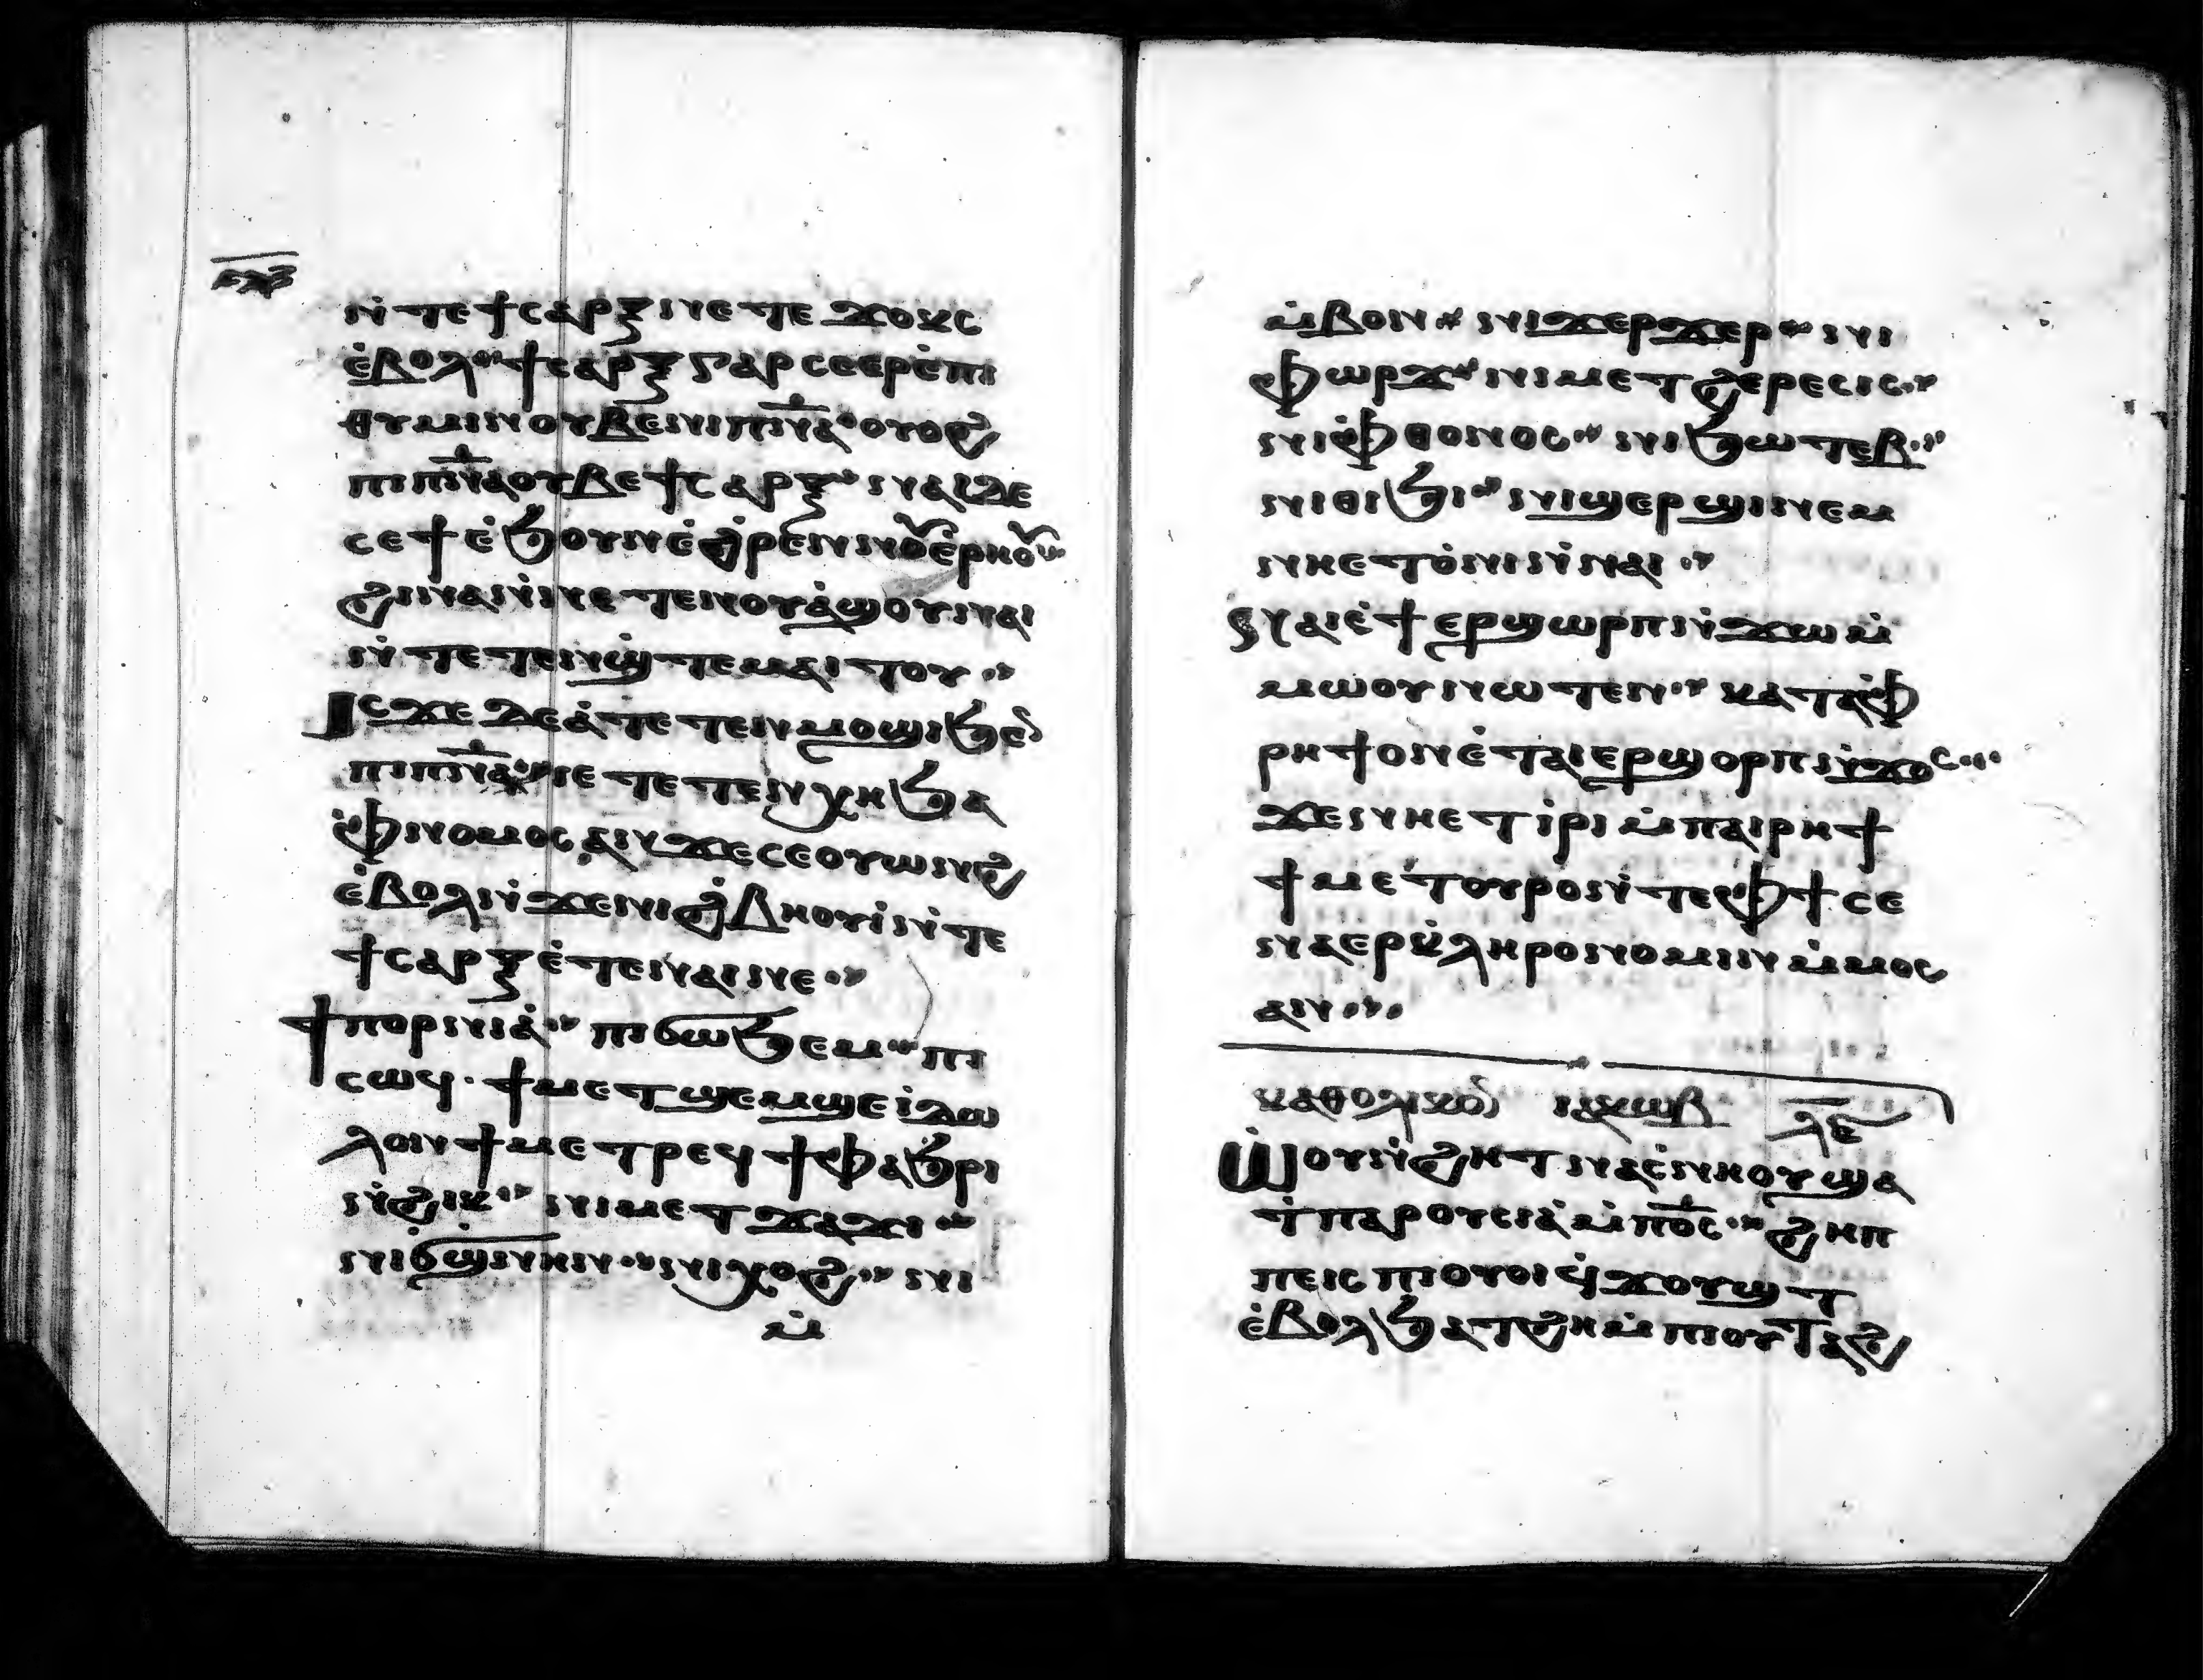 ⲛ̀ⲧⲉϯⲥⲁⲣⲝ ⲛⲛⲉⲧⲉⲛϫⲟⲕⲥ
ⲉ̀ⲃⲟⲗ·· ϯⲥⲁⲣⲝ ⲅⲁⲣ ⲥⲉⲣⲉ̀ⲡⲓ
ⲑⲩⲙⲓⲛ ⲟⲩⲃⲉ ⲛⲓⲡⲛ̅ⲁ̅· ⲟⲩⲟϩ
ⲡⲓⲡⲛ̅ⲁ̅ ⲟⲩⲃⲉ ϯⲥⲁⲣⲝ·· ⲛⲁⲓ ⲇⲉ
ⲥⲉϯ ⲉ̀ϧⲟⲩⲛ ⲉ̀ϩ̀ⲣⲉⲛ ⲛⲟⲩⲉ̀ⲣⲏⲟⲩ··
ϩⲓⲛⲁ ⲛ̀ⲛⲉⲧⲉⲛⲟⲩⲁ̀ϣⲟⲩ ⲛⲁⲓ
ⲛ̀ⲧⲉⲧⲉⲛϣ̀ⲧⲉⲙⲁⲓⲧⲟⲩ··
Ⲓⲥϫⲉ ⲇⲉ ⲁ̀ⲧⲉⲧⲉⲛⲙⲟϣⲓ ϧⲉⲛ
ⲡⲓⲡⲛ̅ⲁ̅·· ⲓⲉ ⲧⲉⲧⲉⲛⲭⲏ ϧⲁ
ⲫ̀ⲛⲟⲙⲟⲥ ⲁⲛ ϫⲉ ⲥⲉⲟⲩⲱⲛϩ
ⲉ̀ⲃⲟⲗ ⲛ̀ϫⲉ ⲛⲓϩ̀ⲃⲏⲟⲩⲓ̀ ⲛ̀ⲧⲉ
ϯⲥⲁⲣⲝ ⲉ̀ⲧⲉ ⲛⲁⲓ ⲛⲉ··
Ϯⲡⲟⲣⲛⲓⲁ̀·· ⲡⲓϭⲱϧⲉⲙ·· ⲡⲓ
ⲥⲱϥ· ϯⲙⲉⲧϣⲉⲙϣⲉ ⲓ̀ⲇⲱ
ⲗⲟⲛ ϯⲙⲉⲧⲣⲉϥϯⲫⲁϧⲣⲓ
ⲛ̀ϩⲓⲕ·· ⲛⲓⲙⲉⲧϫⲁϫⲓ··
ⲛⲓϭ̀ϣⲛⲏⲛ·· ⲛⲓⲭⲟϩ·· ⲛⲓ
ⲙ̀
ⲙ̀ⲃⲟⲛ·· ⲛⲓϫⲉⲣϫⲉⲣ·· ⲛⲓ
ⲫⲱⲣϫ·· ⲛⲓⲙⲉⲧϩⲉⲣⲉⲥⲓⲥ··
ⲛⲓⲫ̀ⲑⲟⲛⲟⲥ·· ⲛⲓϧⲱⲧⲉⲃ··
ⲛⲓⲑⲓϧⲓ·· ⲛⲓϣⲉⲣϣⲓ ⲛⲉⲙ
ⲛⲏⲉⲧⲟ̀ⲛⲓ ⲛ̀ⲛⲁⲓ··
Ⲛⲁⲓ ⲉ̀ϯⲉⲣϣⲱⲣⲡ ⲛ̀ϫⲱ ⲙ̀
ⲙⲱⲟⲩ ⲛⲱⲧⲉⲛ·· ⲕⲁⲧⲁ ⲫ̀
ⲣⲏϯ ⲟⲛ ⲉ̀ⲧⲁⲓⲉⲣϣⲟⲣⲡ ⲛ̀ϫⲟⲥ···
ϫⲉ ⲛⲏⲉⲧⲓ̀ⲣⲓ ⲙ̀ⲡⲁⲓⲣⲏϯ
ϯⲙⲉⲧⲟⲩⲣⲟ ⲛ̀ⲧⲉ ⲫϯ ⲥⲉ
ⲛⲁⲉⲣⲕ̀ⲗⲏⲣⲟⲛⲟⲙⲓⲛ ⲙ̀ⲙⲟⲥ
ⲁⲛ···
ⲕⲁⲑⲟⲗⲓⲕⲟⲛ ⲓⲁⲕⲱⲃ ⲗ̅ⲉ̅
Ⲱⲟⲩⲛ̀ϩⲏⲧ ⲛⲁⲥ̀ⲛⲏⲟⲩ ϣⲁ
ϯⲡⲁⲣⲟⲩⲥⲓⲁ̀ ⲙ̀ⲡⲟ̅ⲥ̅·· ϩⲏⲡ
ⲡⲉ ⲓⲥ ⲡⲓⲟⲩⲟⲓ ϥ̀ϫⲟⲩϣⲧ
ⲉ̀ⲃⲟⲗ ϧⲁⲧϩⲏ ⲙ̀ⲡⲓⲟⲩⲧⲁϩ